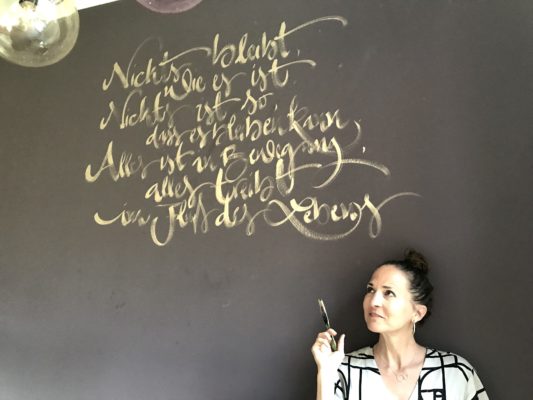 Nichts bleibt,
wie es ist.
Nichts ist so
dass es bleiben kann,
Alles ist in Bewegung,
alles treibt
im Fluss des Lebens